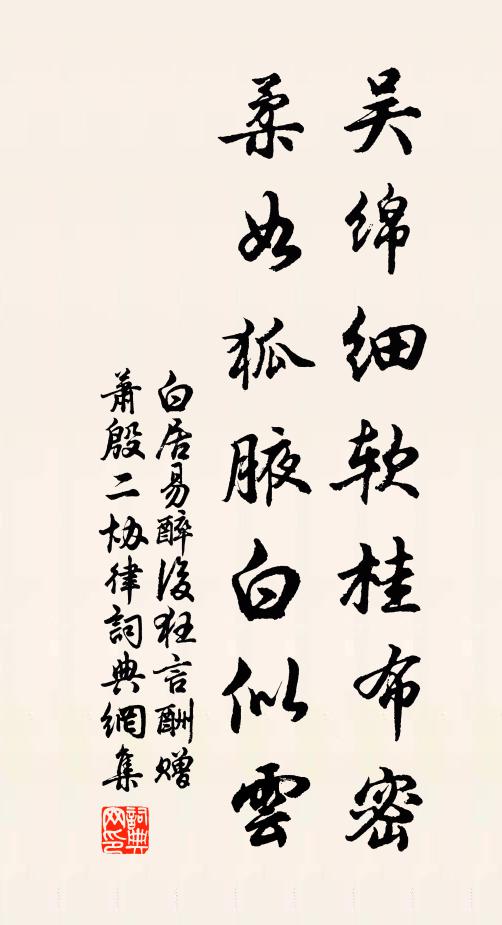 吴绵细软桂布密
柔如狐腋白似雲
白居易醉後狂言酬赠
萧殷二协律詞典網集
詞典网印